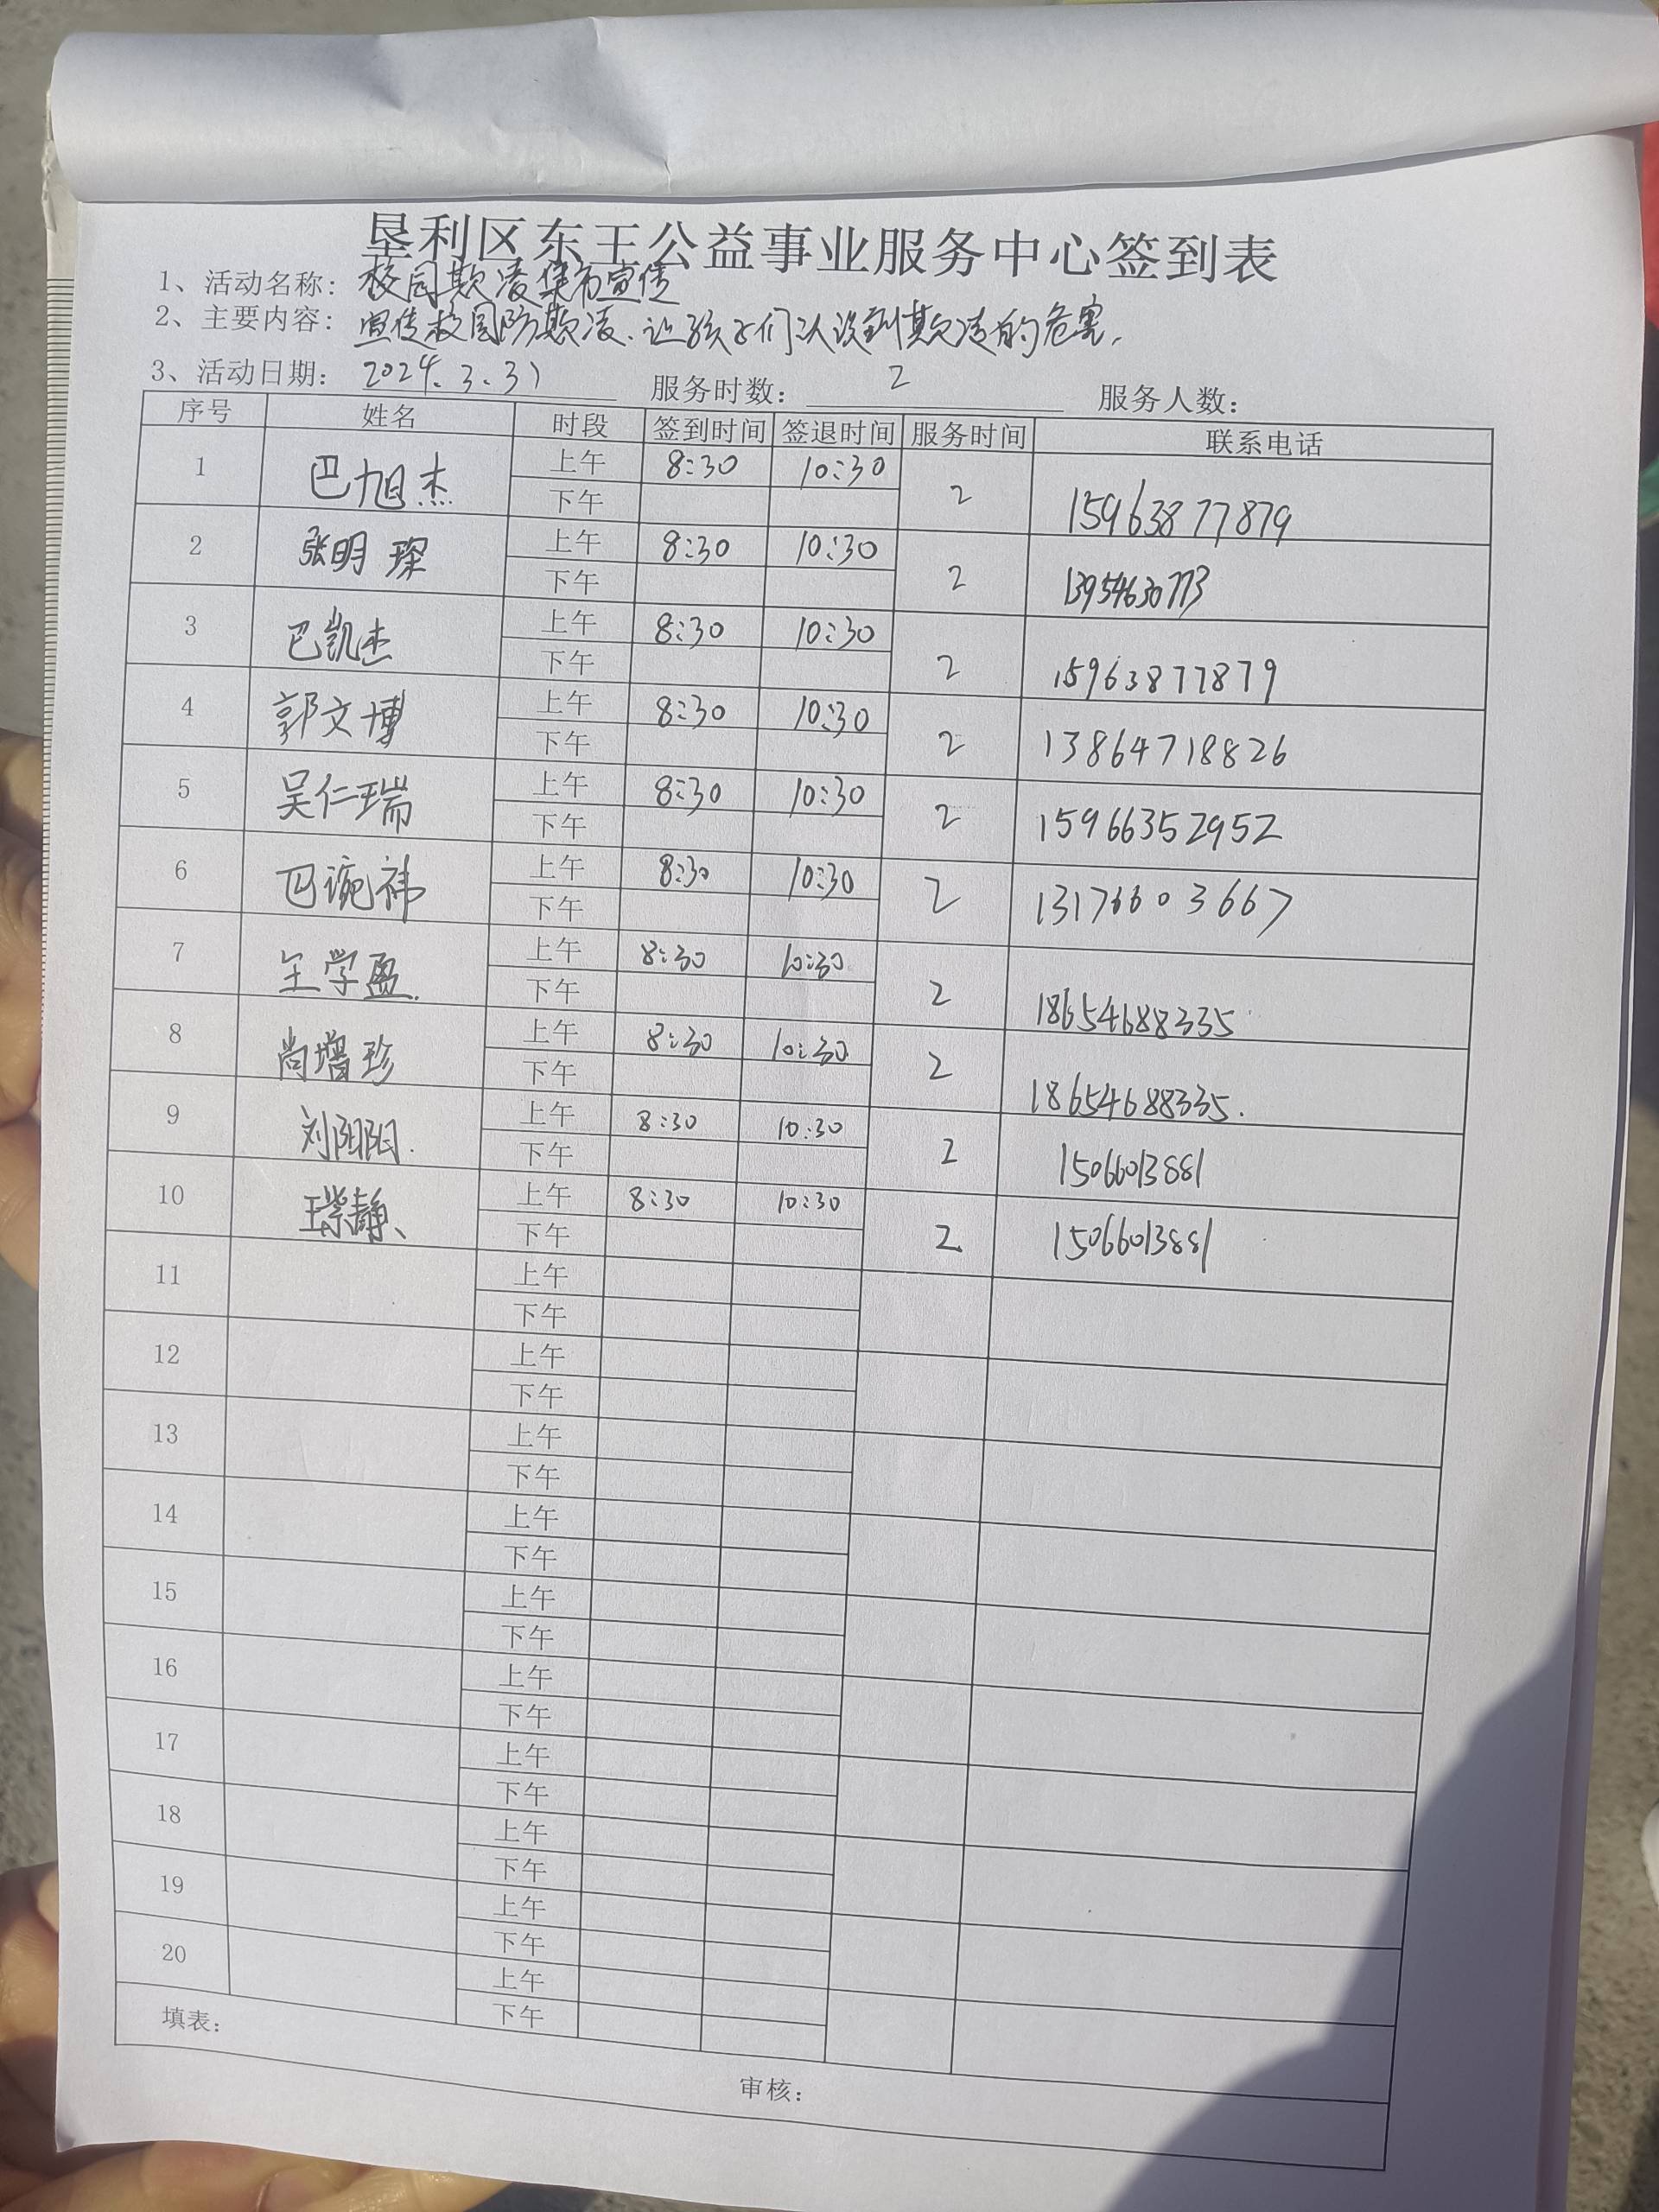 垦利区东王公益事业服务中心签到表
1、活动名称: 校园欺凌集市宣传
2、主要内容: 宣传校园防欺凌、让孩子们认识到欺凌的危害,
3、活动日期: 2024.3.31 服务时数: 2 服务人数:
序号 姓名 时段 签到时间 签退时间 服务时间 联系电话
1 巴旭杰 上午 8:30 10:30 2 15963877879
下午
2 张明琛 上午 8:30 10:30 2 13954630773
下午
3 巴凯杰 上午 8:30 10:30 2 15963877879
下午
4 郭文博 上午 8:30 10:30 2 13864718826
下午
5 吴仁瑞 上午 8:30 10:30 2 15966352952
下午
6 巴琬祎 上午 8:30 10:30 2 13176603667
下午
7 王学盈. 上午 8:30 10:30 2 18654688335
下午
8 尚增珍 上午 8:30 10:30 2 18654688335.
下午
9 刘阳阳. 上午 8:30 10:30 2 15066013881
下午
10 静、 上午 8:30 10:30 2 15066013881
下午
11 上午
下午
12 上午
下午
13 上午
下午
14 上午
下午
15 上午
下午
16 上午
下午
17 上午
下午
18 上午
下午
19 上午
下午
20 上午
下午
填表:
审核: